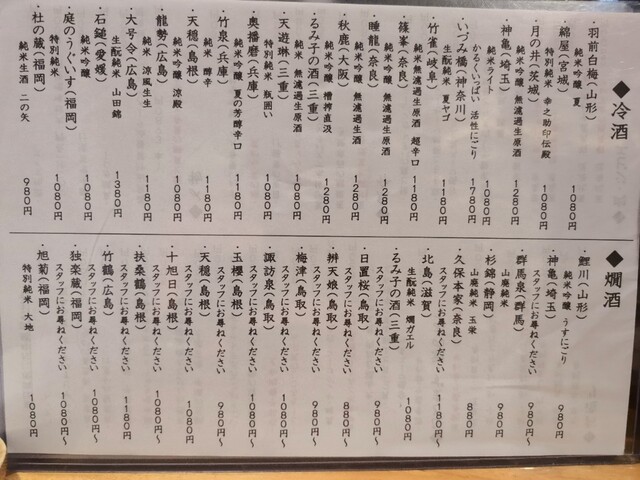 ◆冷酒
・羽前白梅(山形)
純米吟醸 夏
1080円
・綿屋(宮城)
特別純米 幸之助印伝殿
1080円
・月の井(茨城)
純米吟醸 無濾過生原酒
1280円
・神亀(埼玉)
純米ライト
1080円
・いづみ橋(神奈川)
かるくいっぱい 活性にごり
1780円
・竹雀(岐阜)
生酛純米 夏ヤゴ
1180円
・篠峯(奈良)
純米 無濾過生原酒 超辛口
1180円
・睡龍(奈良)
純米吟醸 無濾過生原酒
1280円
・秋鹿(大阪)
純米吟醸 無濾過生酒
1280円
・るみ子の酒(三重)
純米吟醸 槽搾直汲
1280円
・天遊琳(三重)
純米 無濾過生原酒
1080円
・奥播磨(兵庫)
特別純米 瓶囲い
1080円
・竹泉(兵庫)
純米吟醸 夏の芳醇辛口
1180円
・天穏(島根)
純米 醇辛
1180円
・龍勢(広島)
純米吟醸 涼殿
1080円
・大号令(広島)
純米 涼風生生
1180円
・石鎚(愛媛)
生酛純米 山田錦
1380円
・庭のうぐいす(福岡)
純米吟醸
1080円
特別純米
1080円
・杜の蔵(福岡)
純米生酒 二の矢
980円
◆燗酒
・鯉川(山形)
純米吟醸 うすにごり
980円
・神亀(埼玉)
スタッフにお尋ねください
980円~
・群馬泉(群馬)
山廃純米
980円
・杉錦(静岡)
山廃純米 玉栄
880円
・久保本家(奈良)
スタッフにお尋ねください
980円~
・北島(滋賀)
スタッフにお尋ねください
1180円~
・るみ子の酒(三重)
生酛純米 燗ガエル
1080円
・日置桜(鳥取)
スタッフにお尋ねください
980円~
・辨天娘(鳥取)
スタッフにお尋ねください
880円~
・梅津(鳥取)
スタッフにお尋ねください
980円~
・諏訪泉(鳥取)
スタッフにお尋ねください
1080円~
・玉櫻(島根)
スタッフにお尋ねください
1080円~
・天穏(島根)
スタッフにお尋ねください
980円~
・十旭日(島根)
スタッフにお尋ねください
1080円~
・扶桑鶴(島根)
スタッフにお尋ねください
1180円
・竹鶴(広島)
スタッフにお尋ねください
1080円~
・独楽蔵(福岡)
スタッフにお尋ねください
1080円~
・旭菊(福岡)
特別純米 大地
1080円